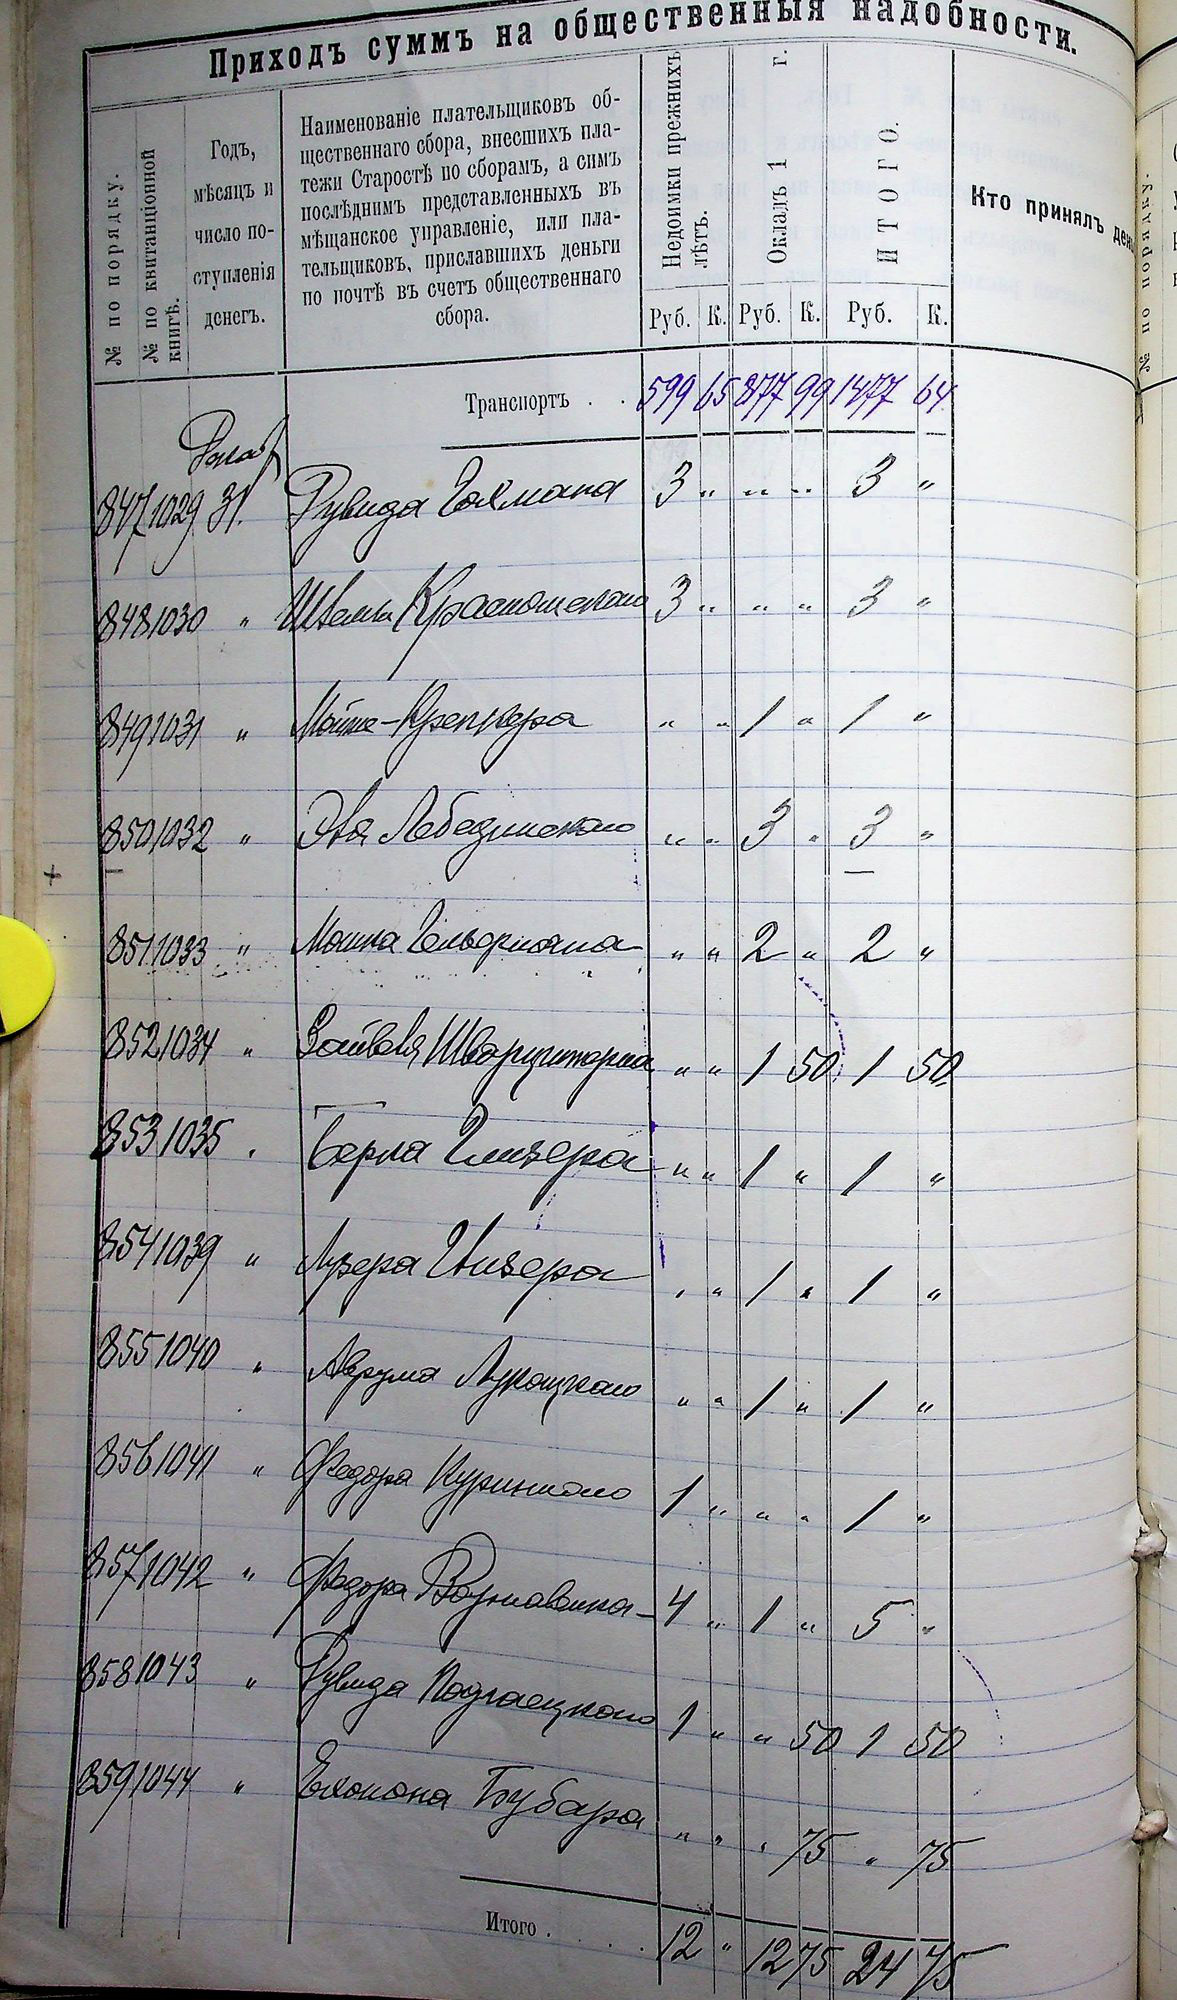 Приходъ суммъ на общественныя надобности.
№ по порядку.
№ по квитанціонной
книгѣ.
Годъ,
мѣсяцъ и
число по-
ступленія
денегъ.
Наименованіе плательщиковъ об-
щественнаго сбора, внесшихъ пла-
тежи Старостѣ по сборамъ, а симъ
послѣднимъ представленныхъ въ
мѣщанское управленіе, или пла-
тельщиковъ, приславшихъ деньги
по почтѣ въ счетъ общественнаго
сбора.
Недоимки прежнихъ
лѣтъ.
Окладъ 1 г.
ИТОГО.
Кто принялъ
Руб. К. Руб. К. Руб. К.
Транспортъ . . 599 65 877 99 1477 64
847 1029 31. Рувида Гохмана 3 „ „ „ 3 „
848 1030 „ 3 „ „ „ 3 „
849 1031 „ „ „ 1 „ 1 „
850 1032 „ Лебединскаго „ „ 3 „ 3 „
851 1033 „ „ „ 2 „ 2 „
852 1034 „ „ „ 1 50 1 50
853 1035 „ Берка Глизера „ „ 1 „ 1 „
854 1039 „ Лузера Глизера „ „ 1 „ 1 „
855 1040 „ Аврума „ „ 1 „ 1 „
856 1041 „ Федора 1 „ „ „ 1 „
857 1042 „ Федора 4 „ 1 „ 5 „
858 1043 „ Рувида Подгаецкаго 1 „ „ 50 1 50
859 1044 „ Бубара „ „ „ 75 „ 75
Итого . . . . 12 „ 12 75 24 75